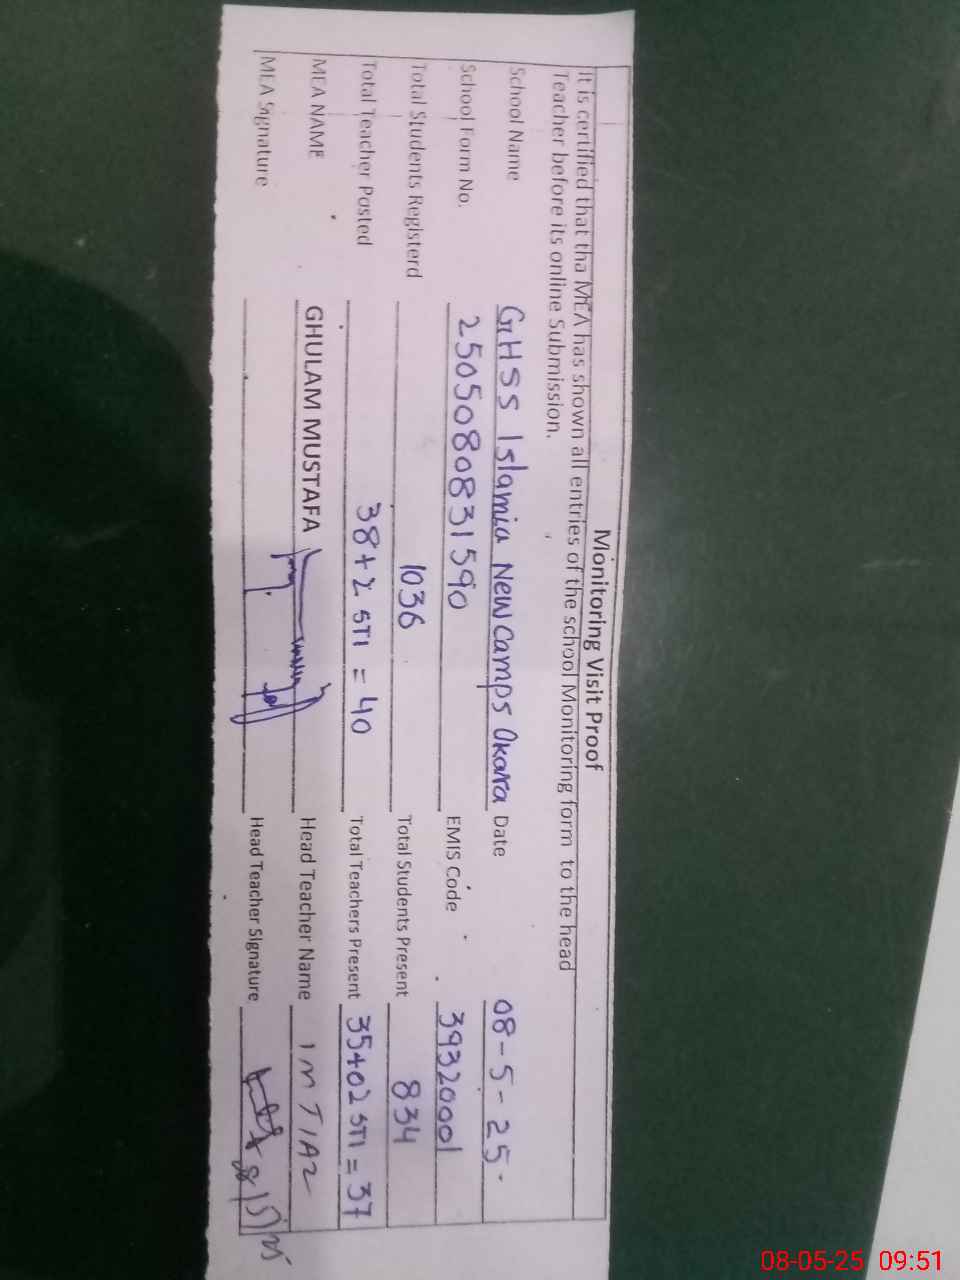 Monitoring Visit Proof
It is certified that tha MEA has shown all entries of the school Monitoring form to the head
Teacher before its online Submission.
School Name GHSS Islamia New Camps Okara Date 08-5-25.
School Form No. 2505080831590 EMIS Code 39320001
Total Students Registerd 1036 Total Students Present 834
Total Teacher Posted 38+2 STI = 40 Total Teachers Present 35+02 STI = 37
MEA NAME GHULAM MUSTAFA Head Teacher Name IMTIAZ
MEA Signature Head Teacher Signature
08-05-25 09:51